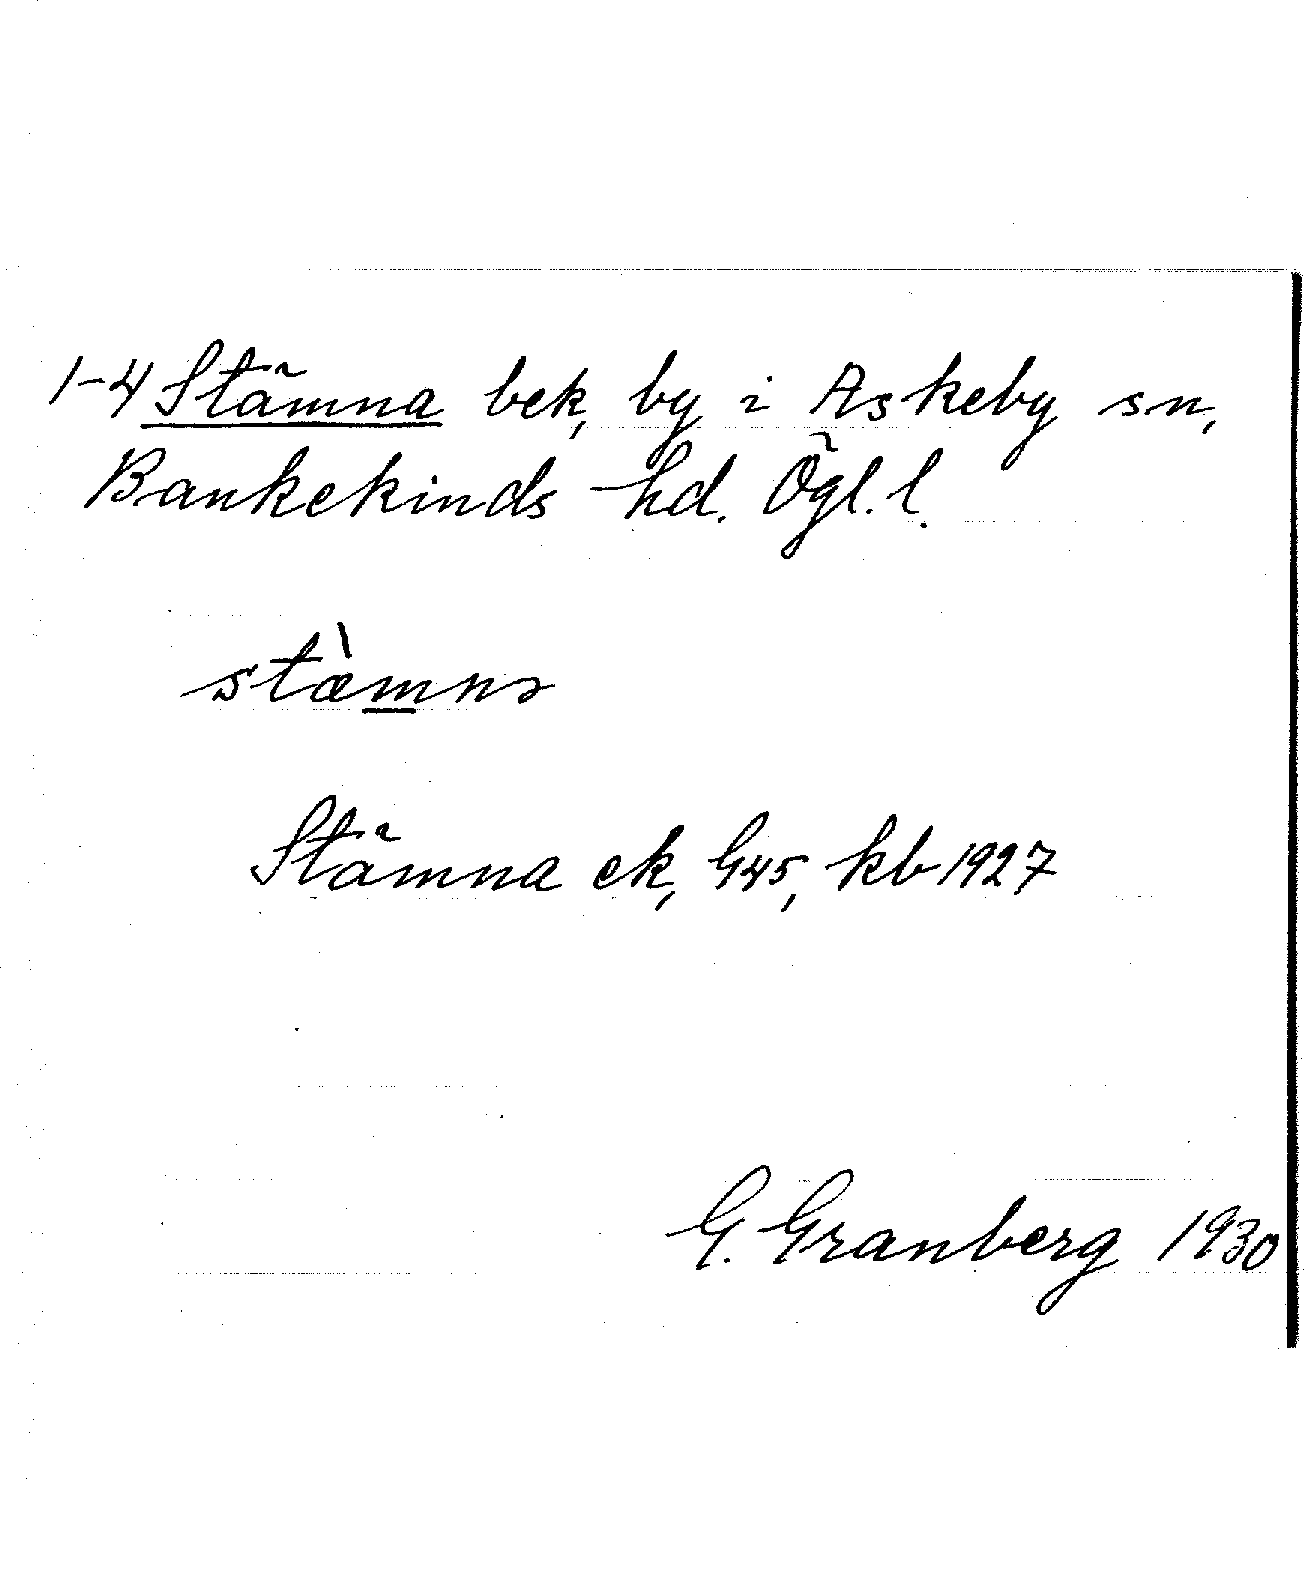 1-4 Stämna bek, by i Askeby sn,
Bankekinds hd. Ögl. l.
stæ̀mnɔ
Stämna ek, G45, kb 1927
G. Granberg 1930